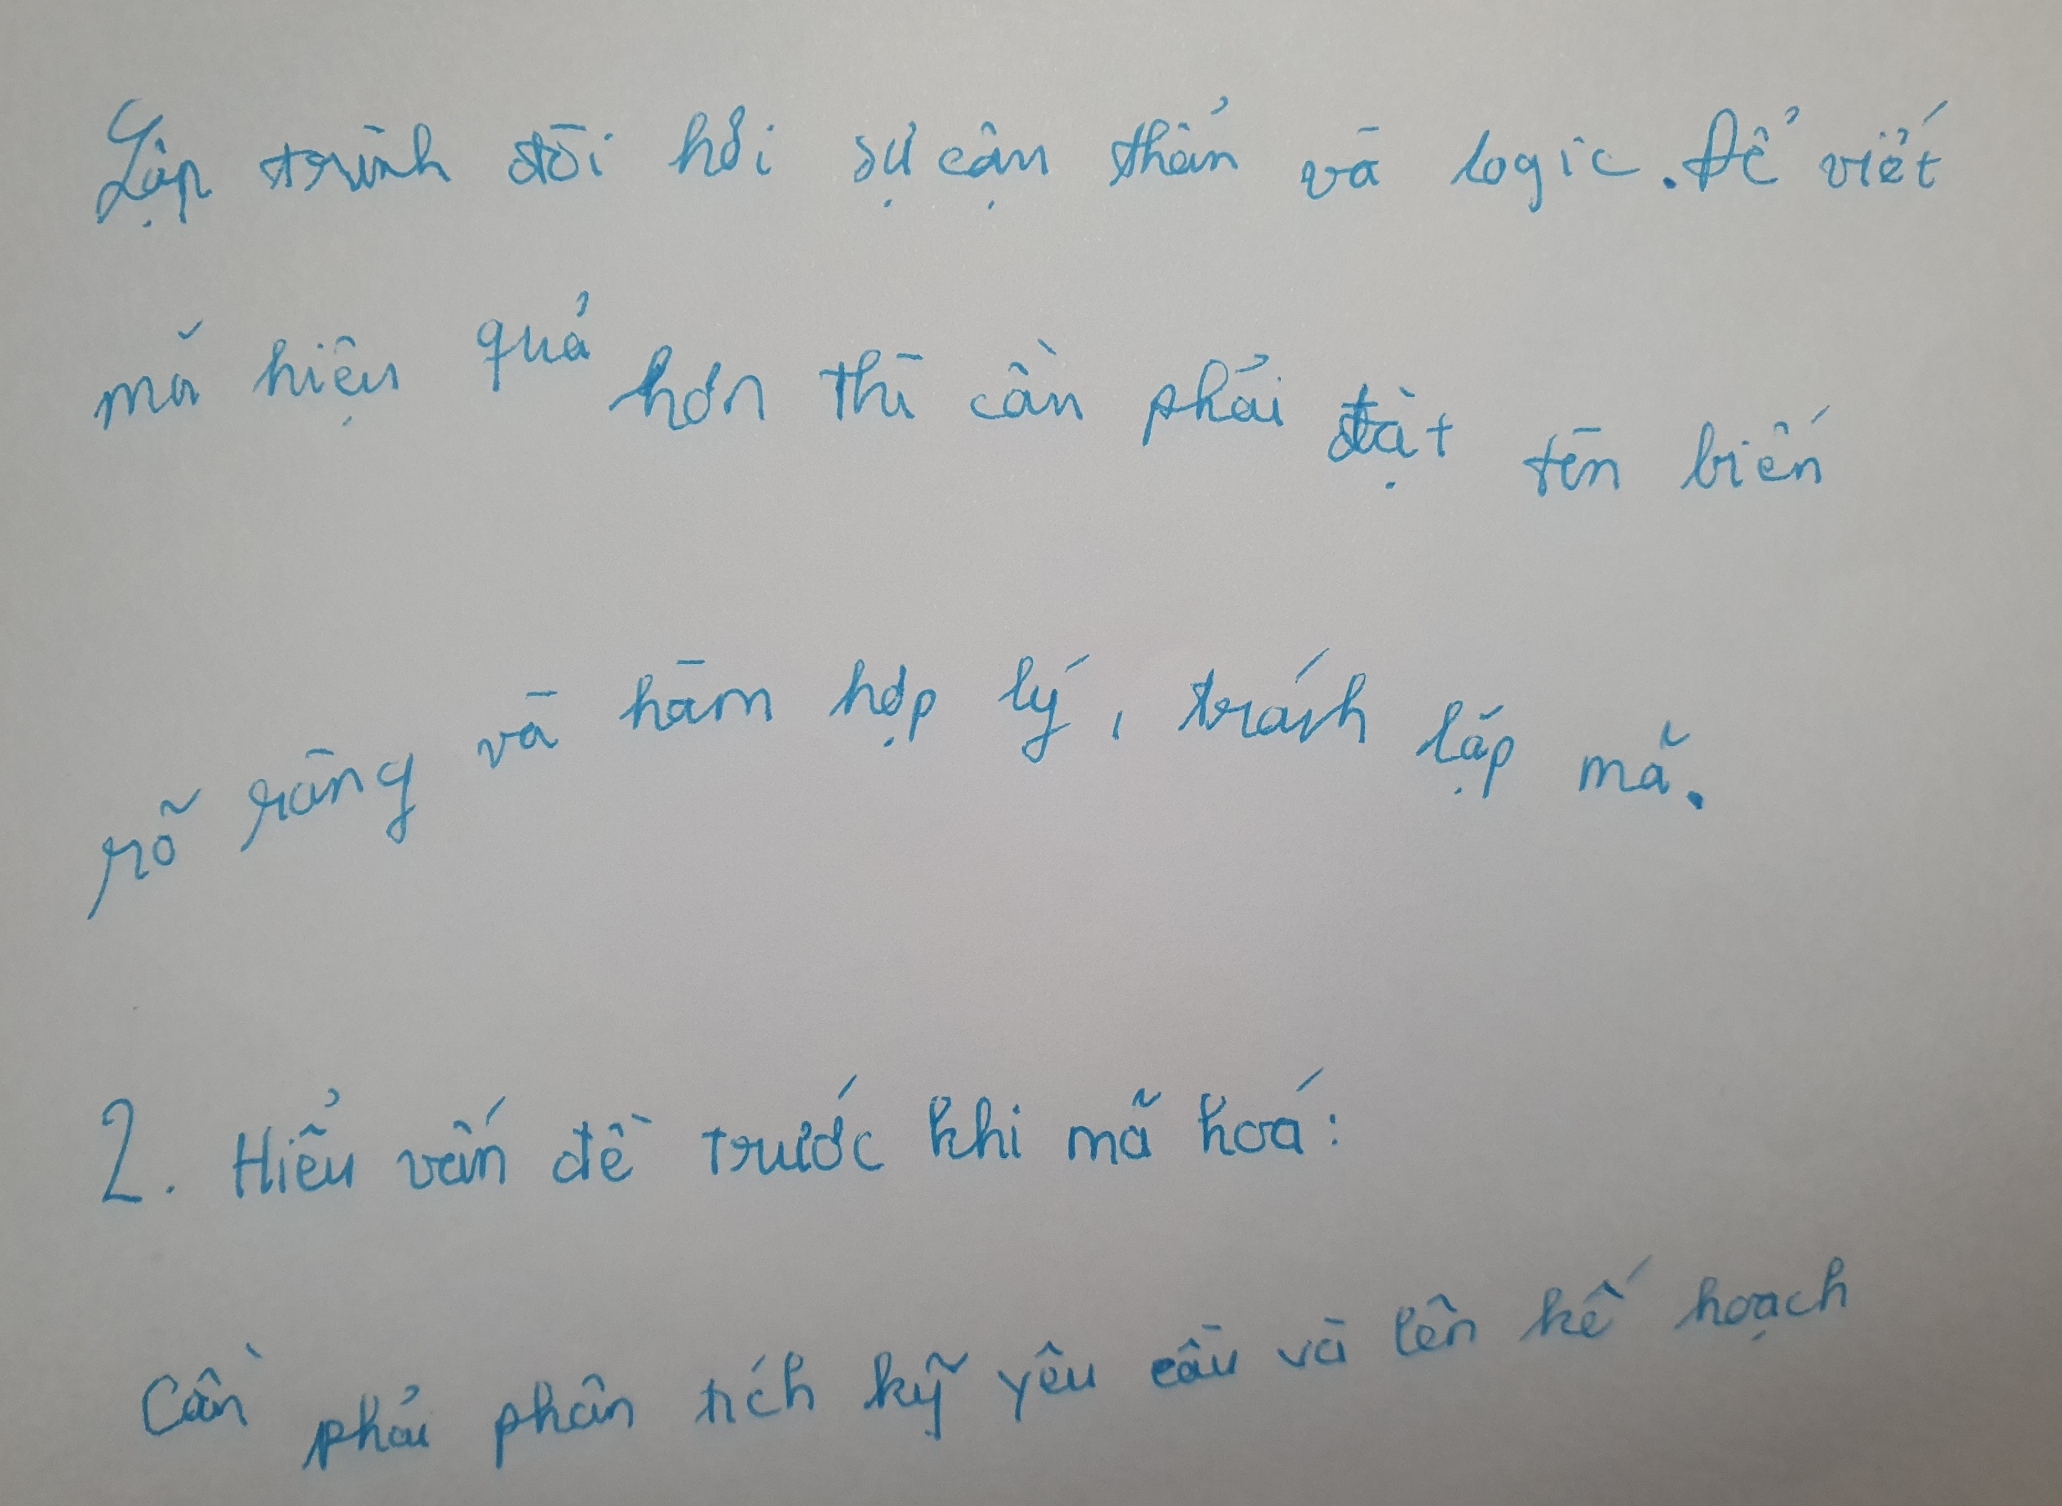 Lập trình đòi hỏi sự cận thẩn và logic. Để viết
mã hiệu quả hơn thì cần phải đặt tên biến
rõ ràng và hàm hợp lý, tránh lặp mã.
2. Hiểu vấn đề trước khi mã hoá:
Cần phải phân tích kỹ yêu cầu và lên kế hoạch